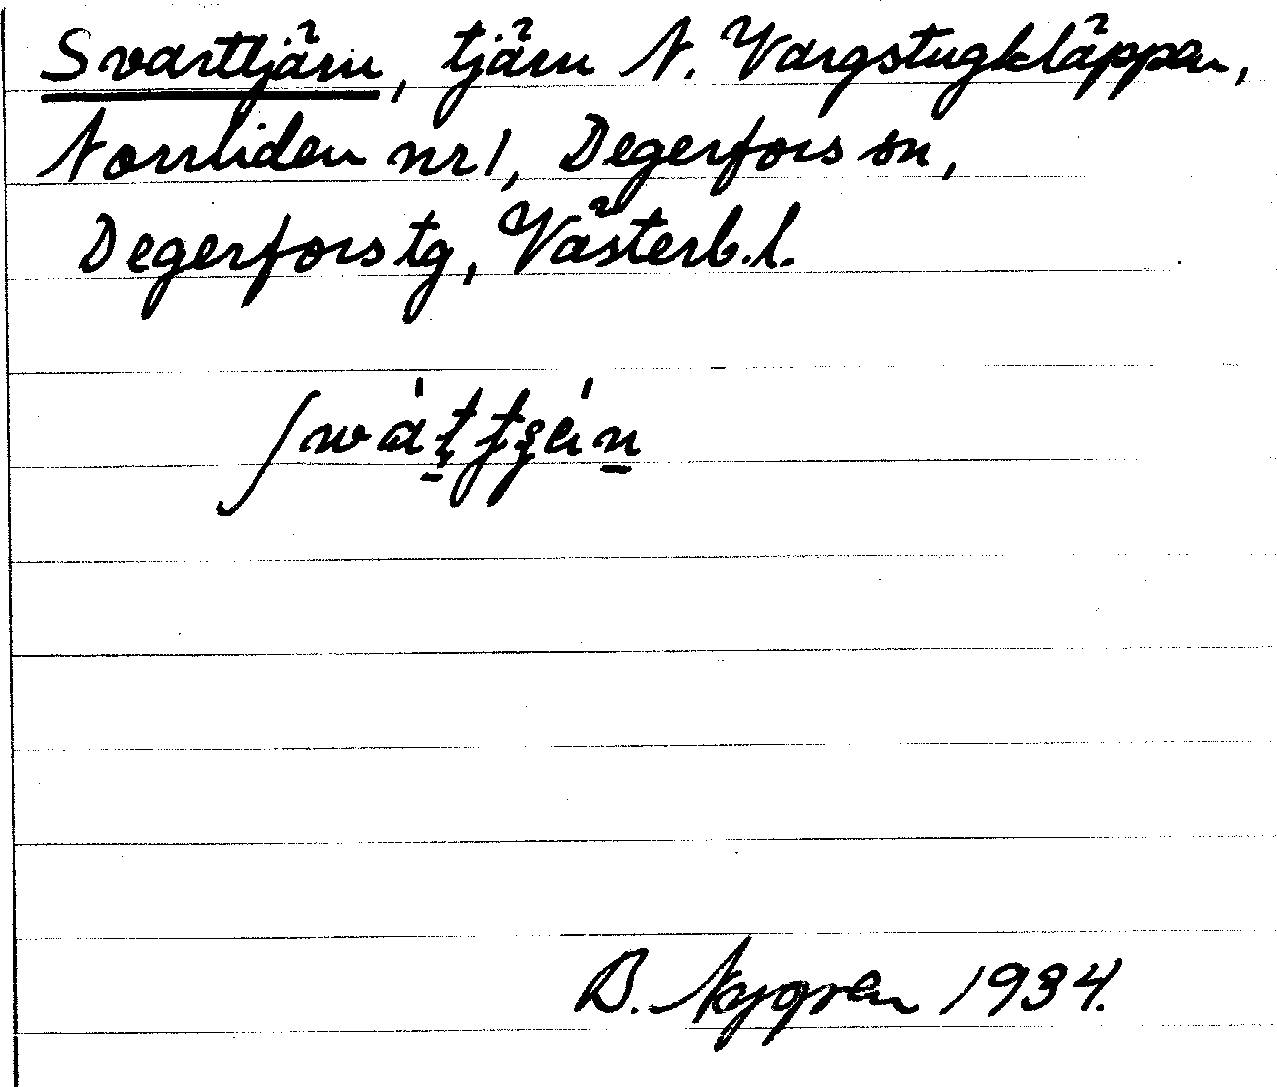 Svarttjärn, tjärn N. Vargstugkläppen,
Norrliden nr 1, Degerfors sn,
Degerfors tg, Västerb. l.
B. Nygren 1934.